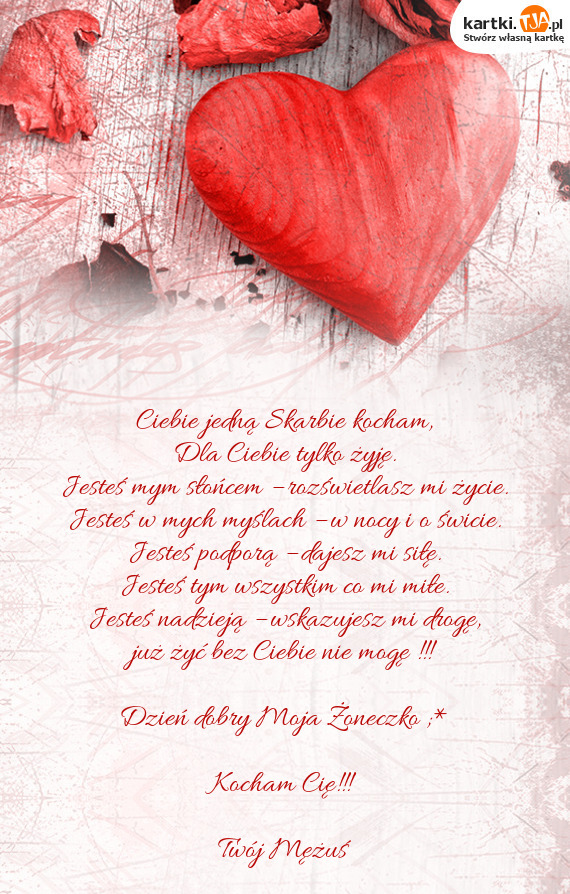 kartki.TJA.pl
Stwórz własną kartkę
Ciebie jedną Skarbie kocham,
Dla Ciebie tylko żyję.
Jesteś mym słońcem – rozświetlasz mi życie.
Jesteś w mych myślach – w nocy i o świcie.
Jesteś podporą – dajesz mi siłę.
Jesteś tym wszystkim co mi miłe.
Jesteś nadzieją – wskazujesz mi drogę,
już żyć bez Ciebie nie mogę !!!
Dzień dobry Moja Żoneczko ;*
Kocham Cię!!!
Twój Mężuś